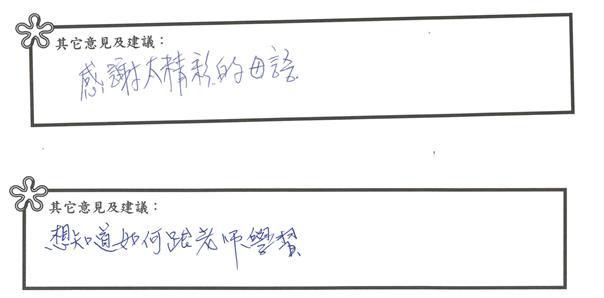 其它意見及建議：
感謝太精彩的母語
其它意見及建議：
想知道如何跟老師學習